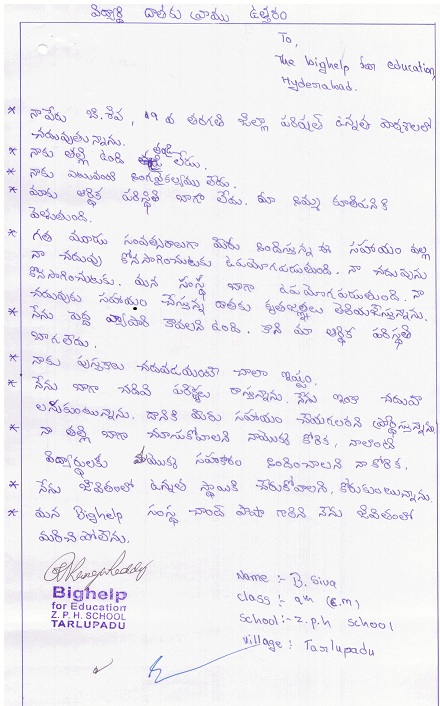 విద్యార్థి దాతకు వ్రాయు ఉత్తరం
To,
The bighelp for education,
Hyderabad.
* నాపేరు బి.శివ, 9 వ తరగతి జిల్లా పరిషత్ ఉన్నత పాఠశాలలో
చదువుతున్నాను.
* నాకు తల్లి ఉంది తండ్రి లేడు.
* నాకు ఎటువంటి అంగవైకల్యము లేదు.
* మాకు ఆర్థిక పరిస్థితి బాగా లేదు. మా అమ్మ కూలిపనికి
వెళుతుంది.
* గత మూడు సంవత్సరాలుగా మీరు అందిస్తున్న ఈ సహాయం వల్ల
నా చదువు కొనసాగించుటకు ఉపయోగపడుతుంది. నా చదువును
కొనసాగించుటకు. మన సంస్థ బాగా ఉపయోగపడుతుంది. నా
చదువుకు సహాయం చేస్తున్న దాతకు కృతజ్ఞతలు తెలియజేస్తున్నాను.
* నేను పెద్ద వ్యాపారి కావాలని ఉంది. కాని మా ఆర్థిక పరిస్థితి
బాగలేదు.
* నాకు పుస్తకాలు చదవడమంటే చాలా ఇష్టం.
* నేను బాగా చదివి పరీక్షలు రాస్తున్నాను. నేను ఇంకా చదువా
లనుకుంటున్నాను. దానికి మీకు సహాయం చేయగలరని ప్రార్థిస్తున్నాను
* నా తల్లి బాగా చూసుకోవాలని నాయొక్క కోరిక, నాలాంటి
విద్యార్థులకు మీయొక్క సహకారం అందించాలని నా కోరిక.
* నేను జీవితంలో ఉన్నత స్థాయికి చేరుకోవాలని, కోరుకుంటున్నాను.
* మన Bighelp సంస్థ చాంద్ పాషా గారిని నేను జీవితంలో
మరిచి పోలేను.
Bighelp
for Education
Z. P. H. SCHOOL
TARLUPADU
Name :- B. Siva
class :- 9th (E.M)
school :- z.p.h school
village : Tarlupadu